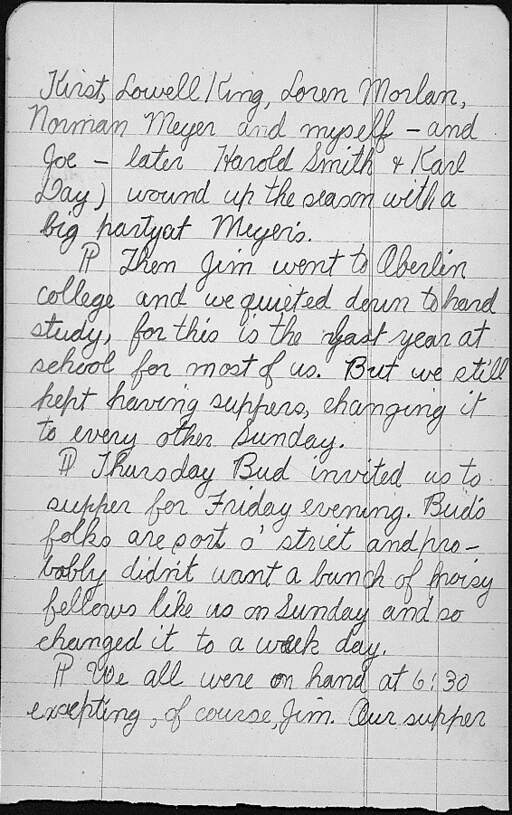 Kirst, Lowell King, Loren Morlan,
Norman Meyer and myself – and
Joe – later Harold Smith & Karl
Day) wound up the season with a
big party at Meyer's.
¶ Then Jim went to Oberlin
college and we quieted down to hard
study, for this is the last year at
school for most of us. But we still
kept having suppers, changing it
to every other Sunday.
¶ Thursday Bud invited us to
supper for Friday evening. Bud's
folks are sort o' strict and pro-
bably didn't want a bunch of noisy
fellows like us on Sunday and so
changed it to a week day.
¶ We all were on hand at 6:30
excepting, of course, Jim. Our supper